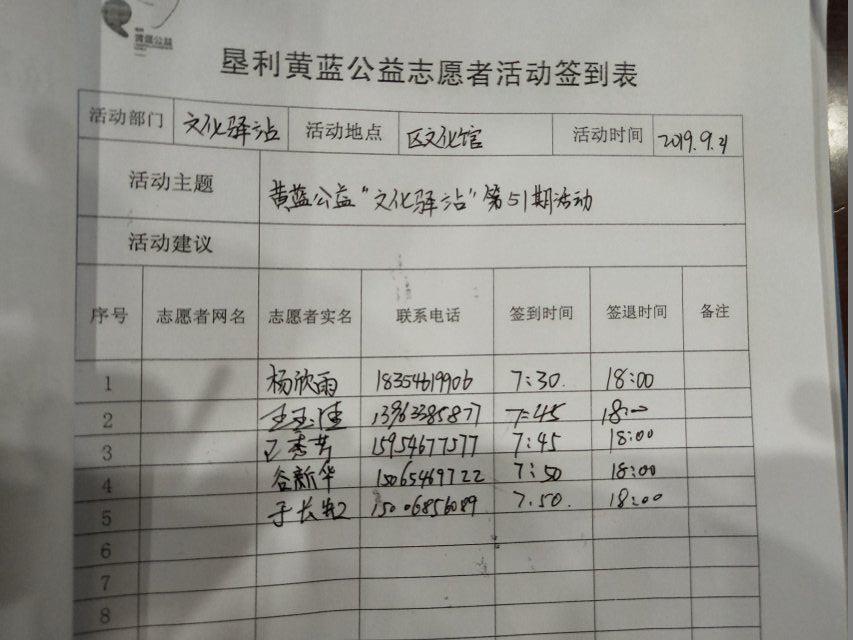 黄蓝公益
垦利黄蓝公益志愿者活动签到表
活动部门 文化驿站 活动地点 区文化馆 活动时间 2019.9.21
活动主题 黄蓝公益“文化驿站”第51期活动
活动建议
序号 志愿者网名 志愿者实名 联系电话 签到时间 签退时间 备注
1 杨欣雨 18354619906 7:30. 18:00
2 13963385877 7:45 18:00
3 王秀芳 15954677577 7:45 18:00
4 谷新华 15065469722 7:50 18:00
5 15006856089 7.50. 18:00
6
7
8